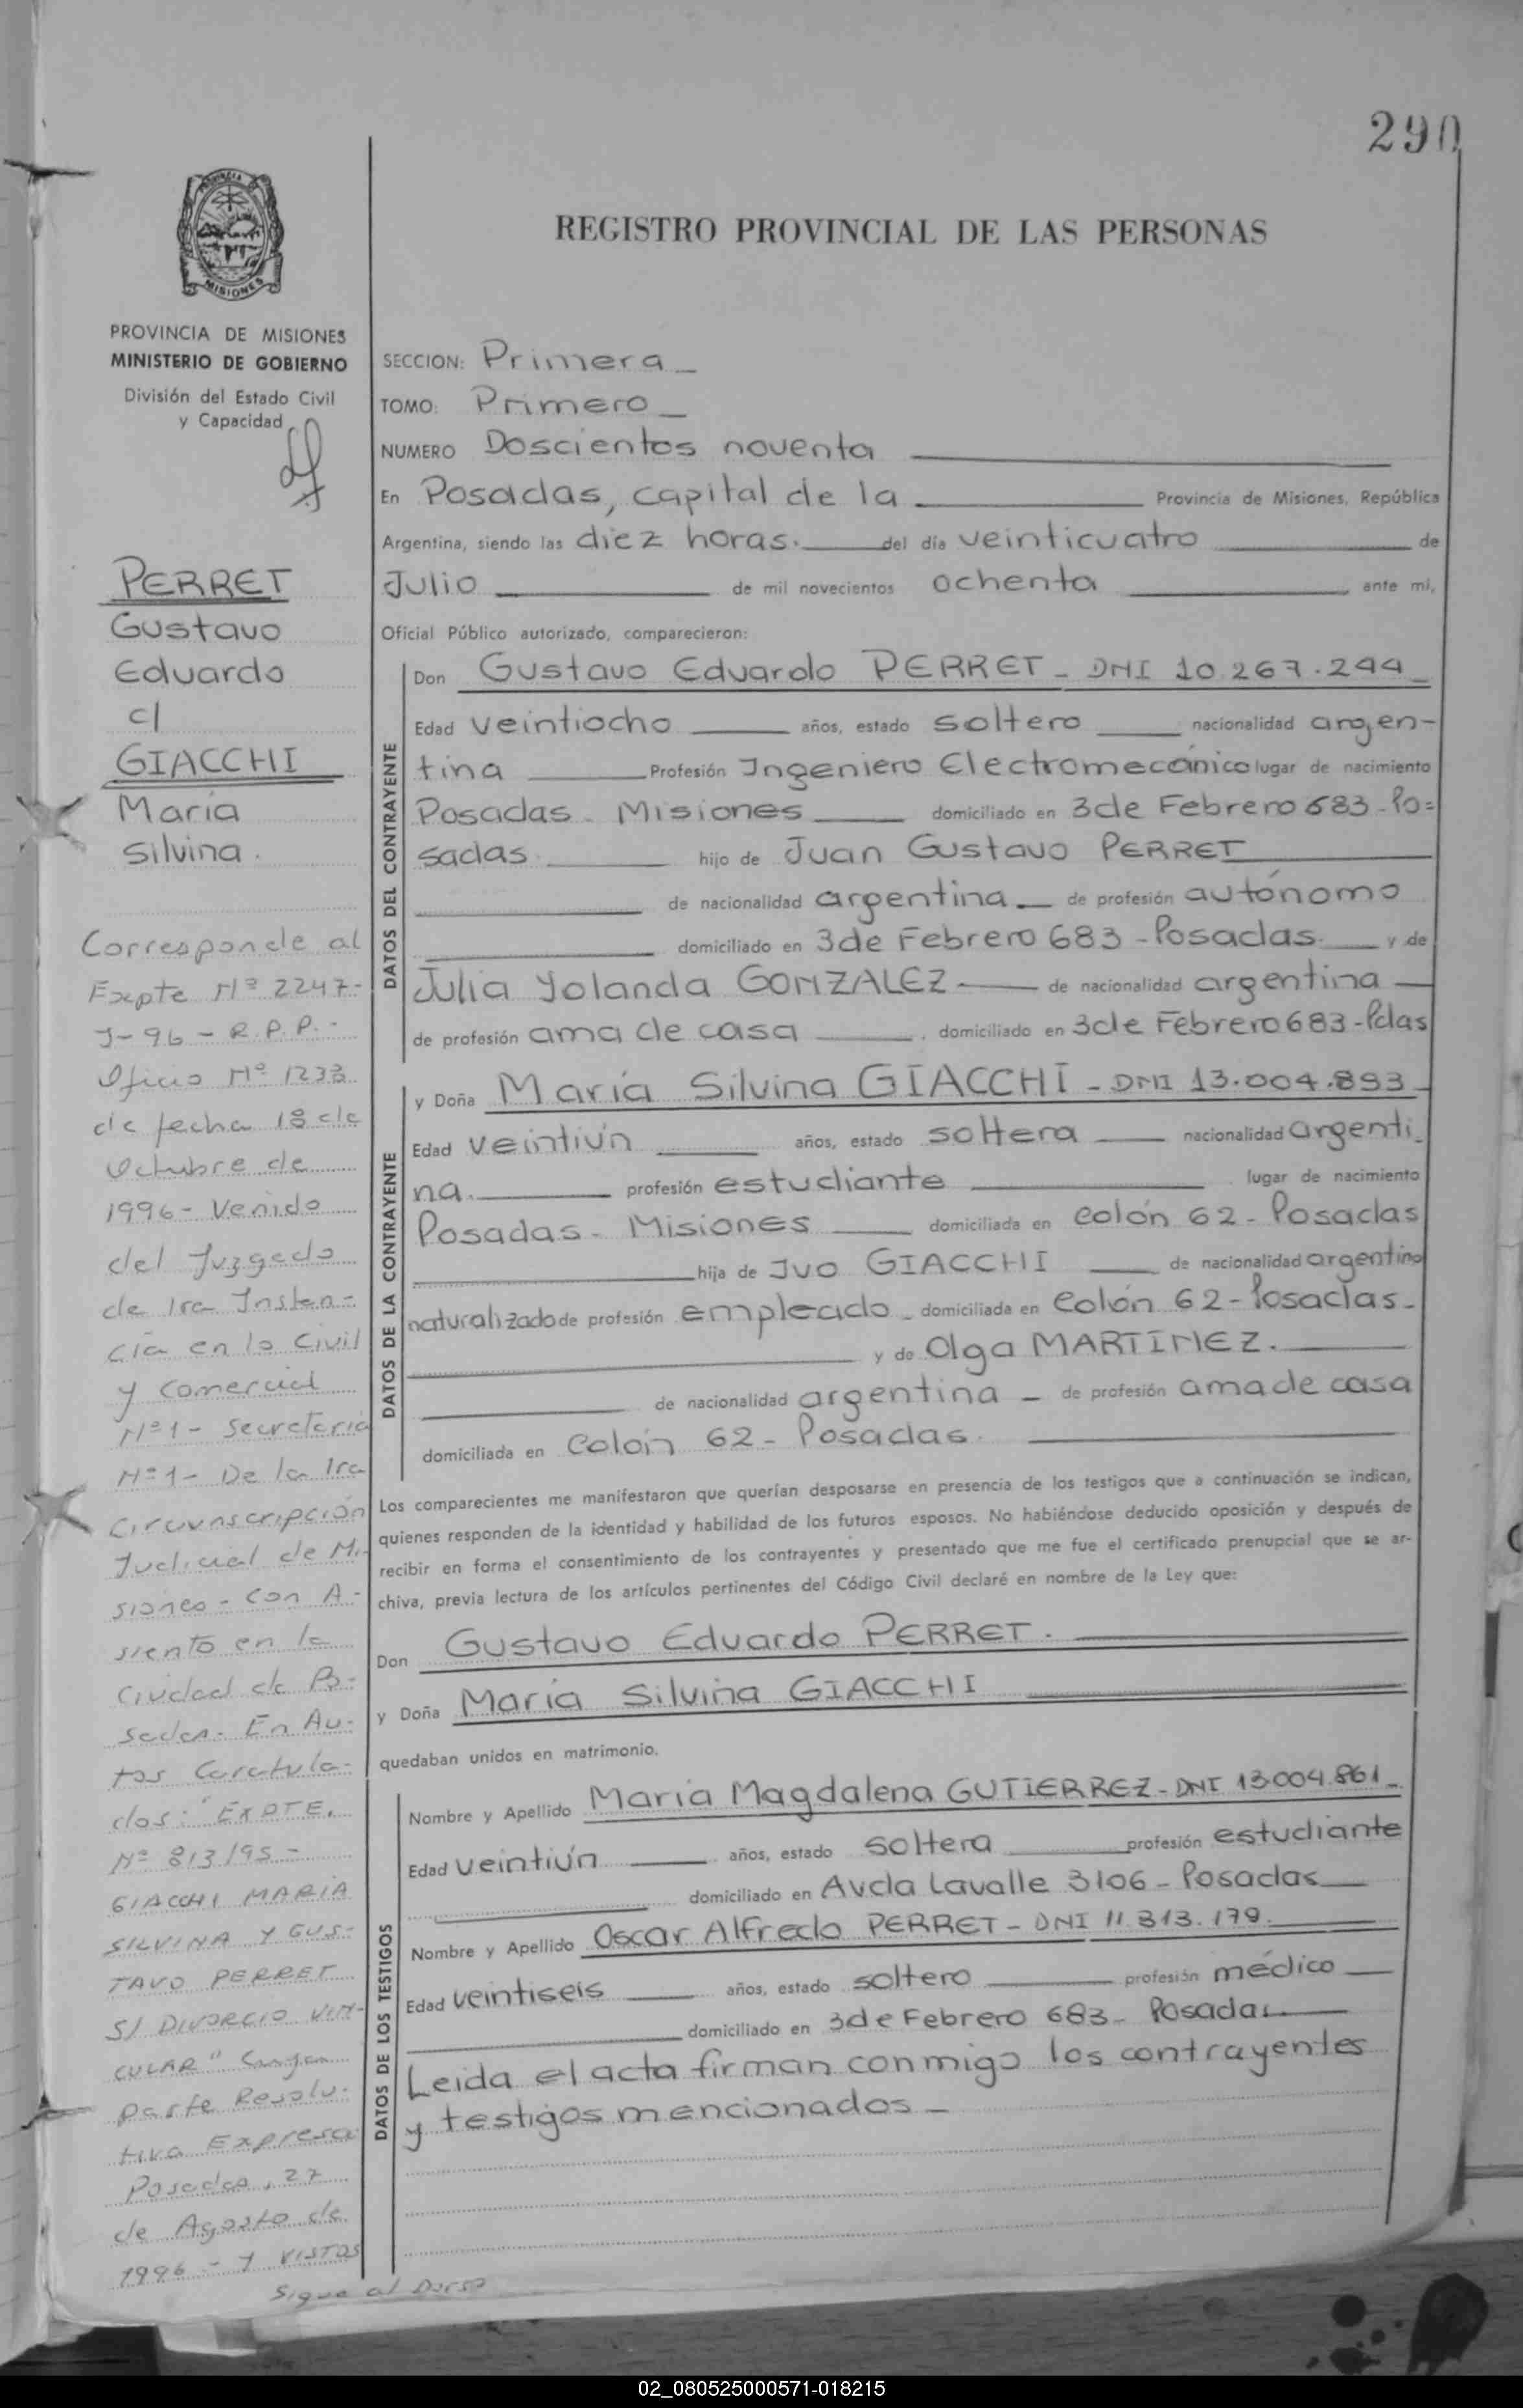 290
REGISTRO PROVINCIAL DE LAS PERSONAS
PROVINCIA DE MISIONES
MINISTERIO DE GOBIERNO
División del Estado Civil
y Capacidad
PERRET
Gustavo
Eduardo
c/
GIACCHI
María
Silvina.
Corresponde al
Expte Nº 2247-
J-96 - R.P.P.-
Oficio Nº 1233
de fecha 18 de
Octubre de
1996- Venido
del Juzgado
de 1ra Instan-
cia en lo Civil
y Comercial
Nº1- Secretaria
Nº1- De la 1ra
Circunscripción
Judicial de Mi-
siones - con A-
siento en la
Ciudad de Po-
sadas. En Au-
tos Caratula-
dos: "EXPTE.
Nº 813/95-
GIACCHI MARIA
SILVINA Y GUS-
TAVO PERRET
S/ DIVORCIO VIN-
CULAR" Cuya
parte Resolu-
tiva Expresa
Posadas, 27
de Agosto de
1996 - Y VISTOS
Sigue al Dorso
SECCION: Primera
TOMO: Primero
NUMERO Doscientos noventa
En Posadas, capital de la Provincia de Misiones, República
Argentina, siendo las diez horas. del día veinticuatro de
Julio de mil novecientos ochenta ante mí,
Oficial Público autorizado, comparecieron:
DATOS DEL CONTRAYENTE
Don Gustavo Eduardo PERRET - DNI 10.267.244
Edad veintiocho años, estado soltero nacionalidad argen-
tina Profesión Ingeniero Electromecánico lugar de nacimiento
Posadas - Misiones domiciliado en 3 de Febrero 683 - Po=
sadas hijo de Juan Gustavo PERRET
de nacionalidad argentina de profesión autónomo
domiciliado en 3 de Febrero 683 - Posadas y de
Julia Yolanda GONZALEZ de nacionalidad argentina
de profesión ama de casa domiciliado en 3 de Febrero 683 - Pdas
DATOS DE LA CONTRAYENTE
y Doña María Silvina GIACCHI - DNI 13.004.893
Edad veintiún años, estado soltera nacionalidad argenti-
na. profesión estudiante lugar de nacimiento
Posadas - Misiones domiciliada en Colón 62 - Posadas
hija de Ivo GIACCHI de nacionalidad argentino
naturalizado de profesión empleado - domiciliada en Colón 62 - Posadas -
y de Olga MARTINEZ.
de nacionalidad argentina - de profesión ama de casa
domiciliada en Colón 62 - Posadas.
Los comparecientes me manifestaron que querían desposarse en presencia de los testigos que a continuación se indican,
quienes responden de la identidad y habilidad de los futuros esposos. No habiéndose deducido oposición y después de
recibir en forma el consentimiento de los contrayentes y presentado que me fue el certificado prenupcial que se ar-
chiva, previa lectura de los artículos pertinentes del Código Civil declaré en nombre de la Ley que:
Don Gustavo Eduardo PERRET.
y Doña María Silvina GIACCHI
quedaban unidos en matrimonio.
DATOS DE LOS TESTIGOS
Nombre y Apellido María Magdalena GUTIERREZ - DNI 13.004.861
Edad veintiún años, estado soltera profesión estudiante
domiciliado en Avda Lavalle 3106 - Posadas
Nombre y Apellido Oscar Alfredo PERRET - DNI 11.313.179.
Edad veintiseis años, estado soltero profesión médico
domiciliado en 3 de Febrero 683 - Posadas
Leída el acta firman conmigo los contrayentes
y testigos mencionados -
02_080525000571-018215